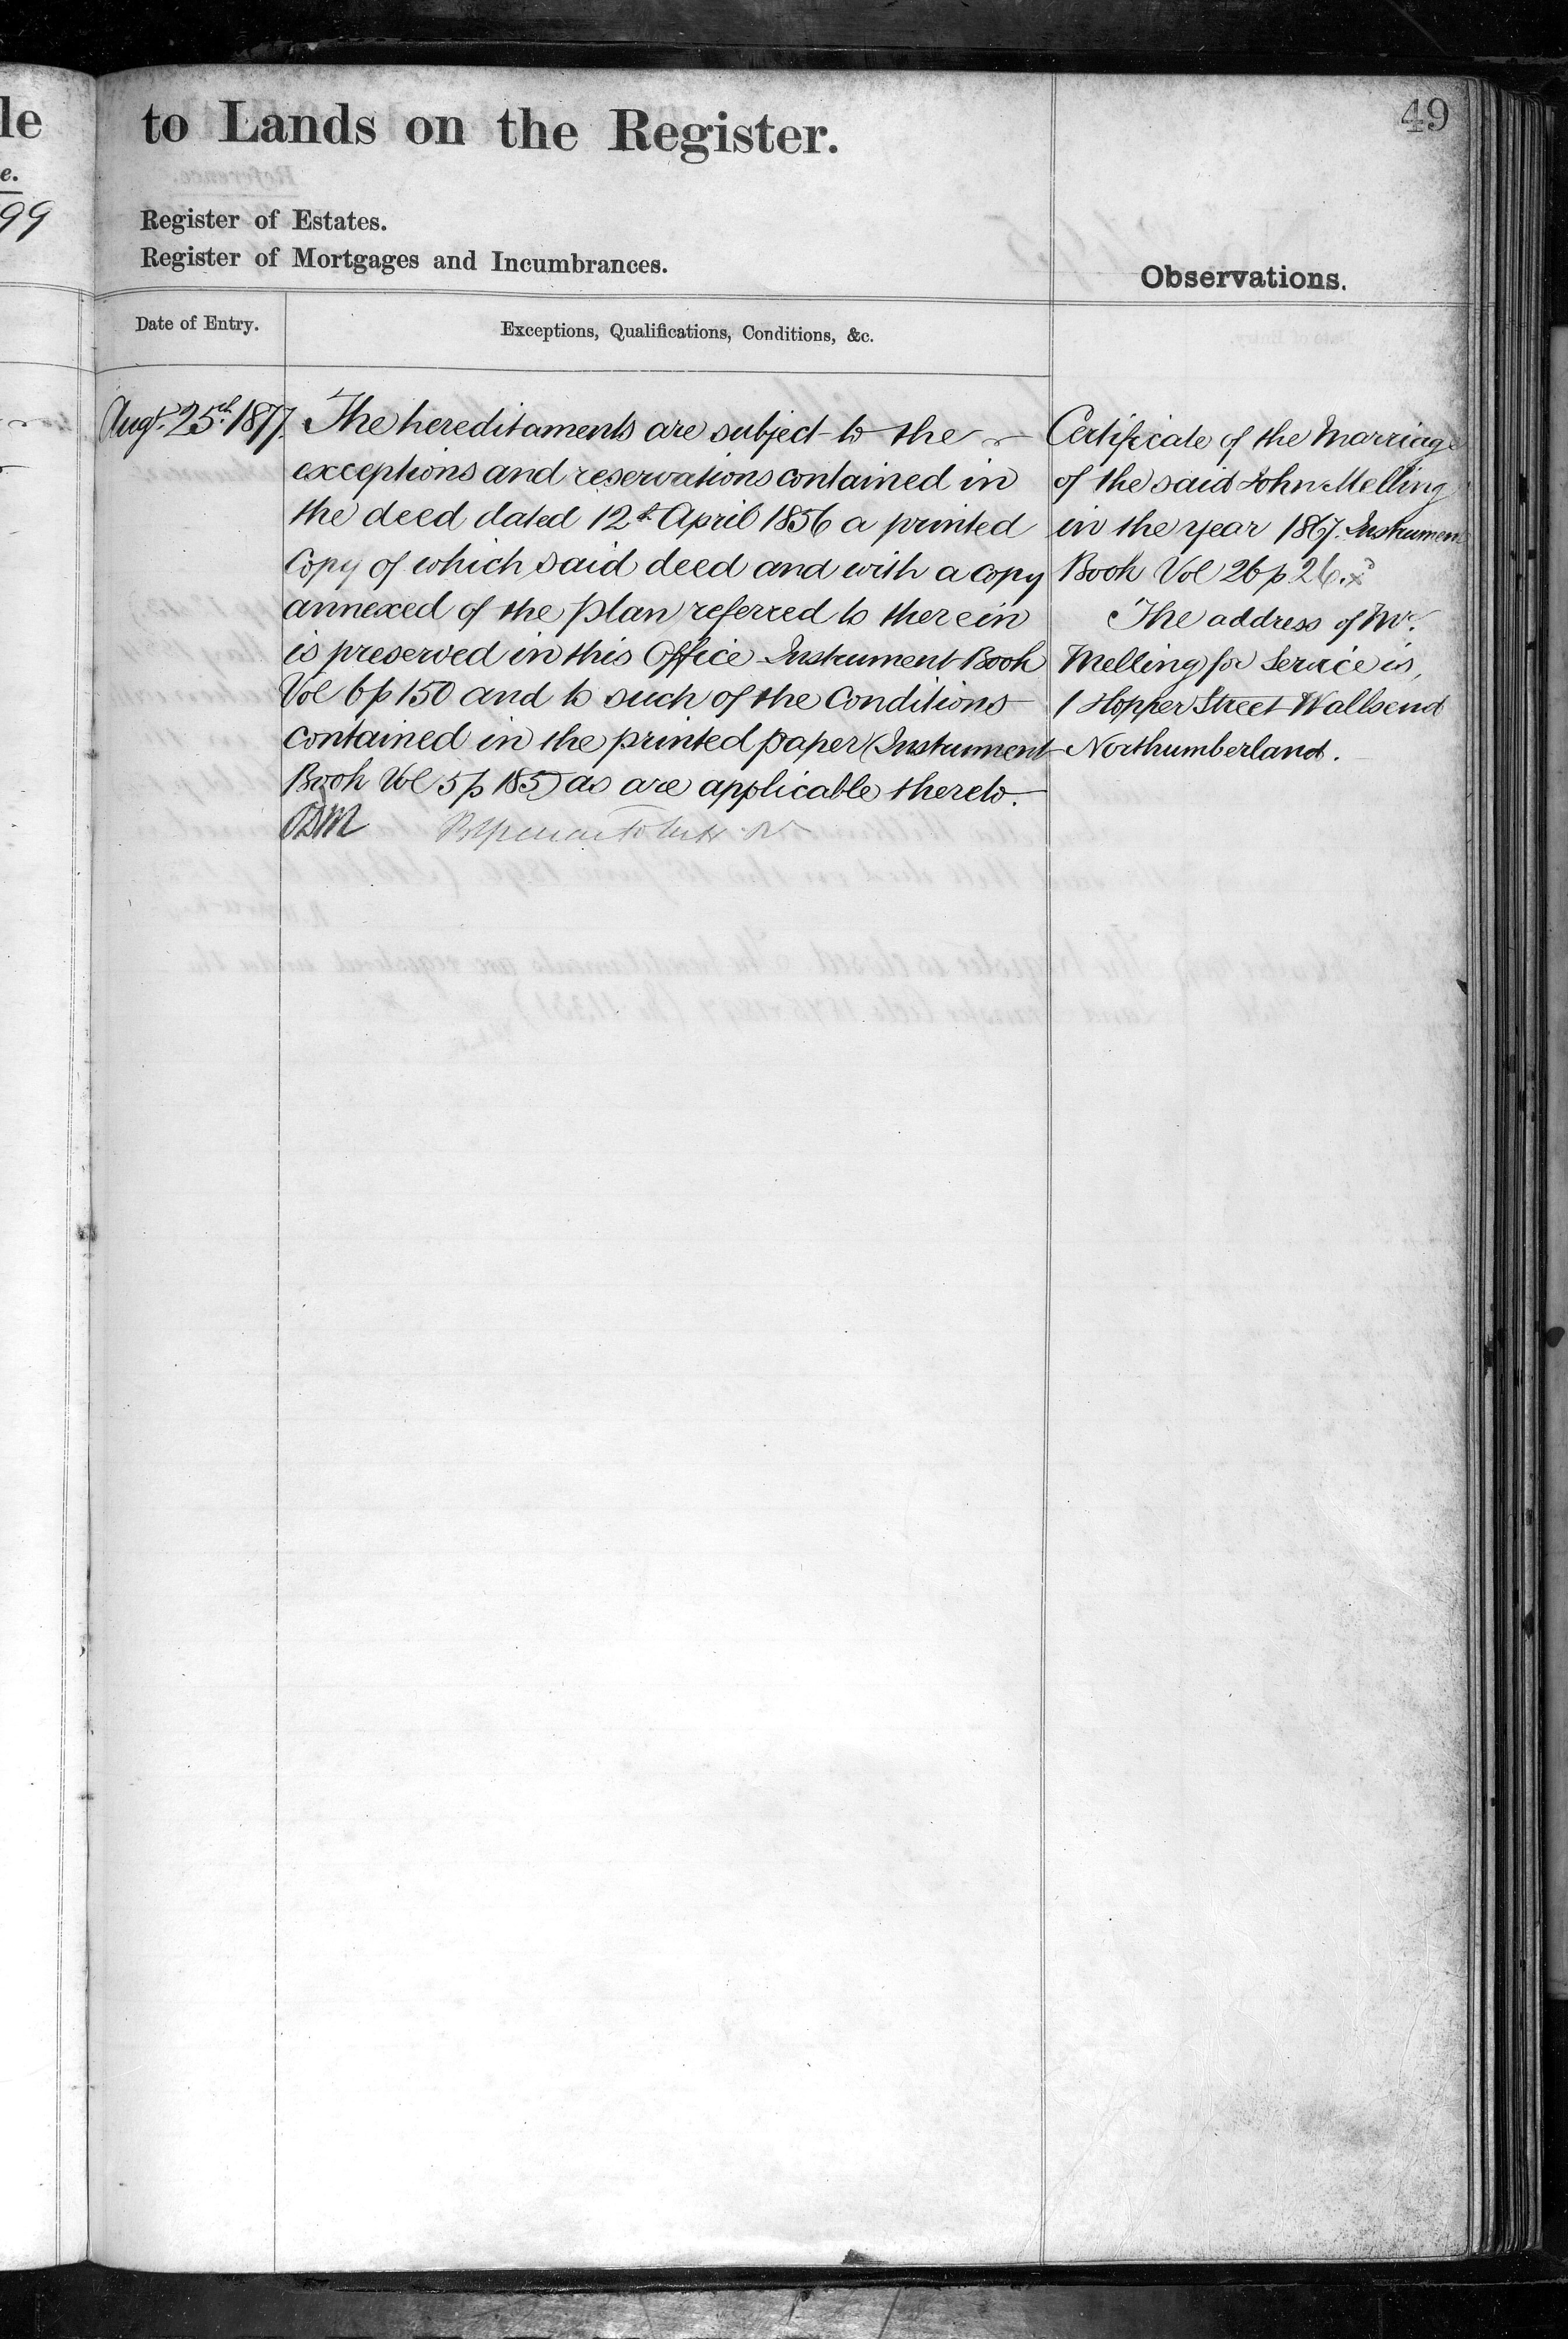 le
e.
99
49
to Lands on the Register.
Register of Estates.
Register of Mortgages and Incumbrances.
Observations.
Date of Entry.
Exceptions, Qualifications, Conditions, &c.
Augt. 25th. 1877.
The hereditaments are subject to the
exceptions and reservations contained in
the deed dated 12th April 1856 a printed
Copy of which said deed and with a copy
annexed of the plan referred to therein
is preserved in this Office Instrument Book
Vol 6 p 150 and to such of the Conditions
contained in the printed paper (Instrument
Book Vol 5 p 185) as are applicable thereto.
Certificate of the Marriage
of the said John Melling
in the year 1867. Instrument
Book Vol 26 p 26.
The address of Mr.
Melling for Service is,
1 Hopper Street Wallsend
Northumberland.